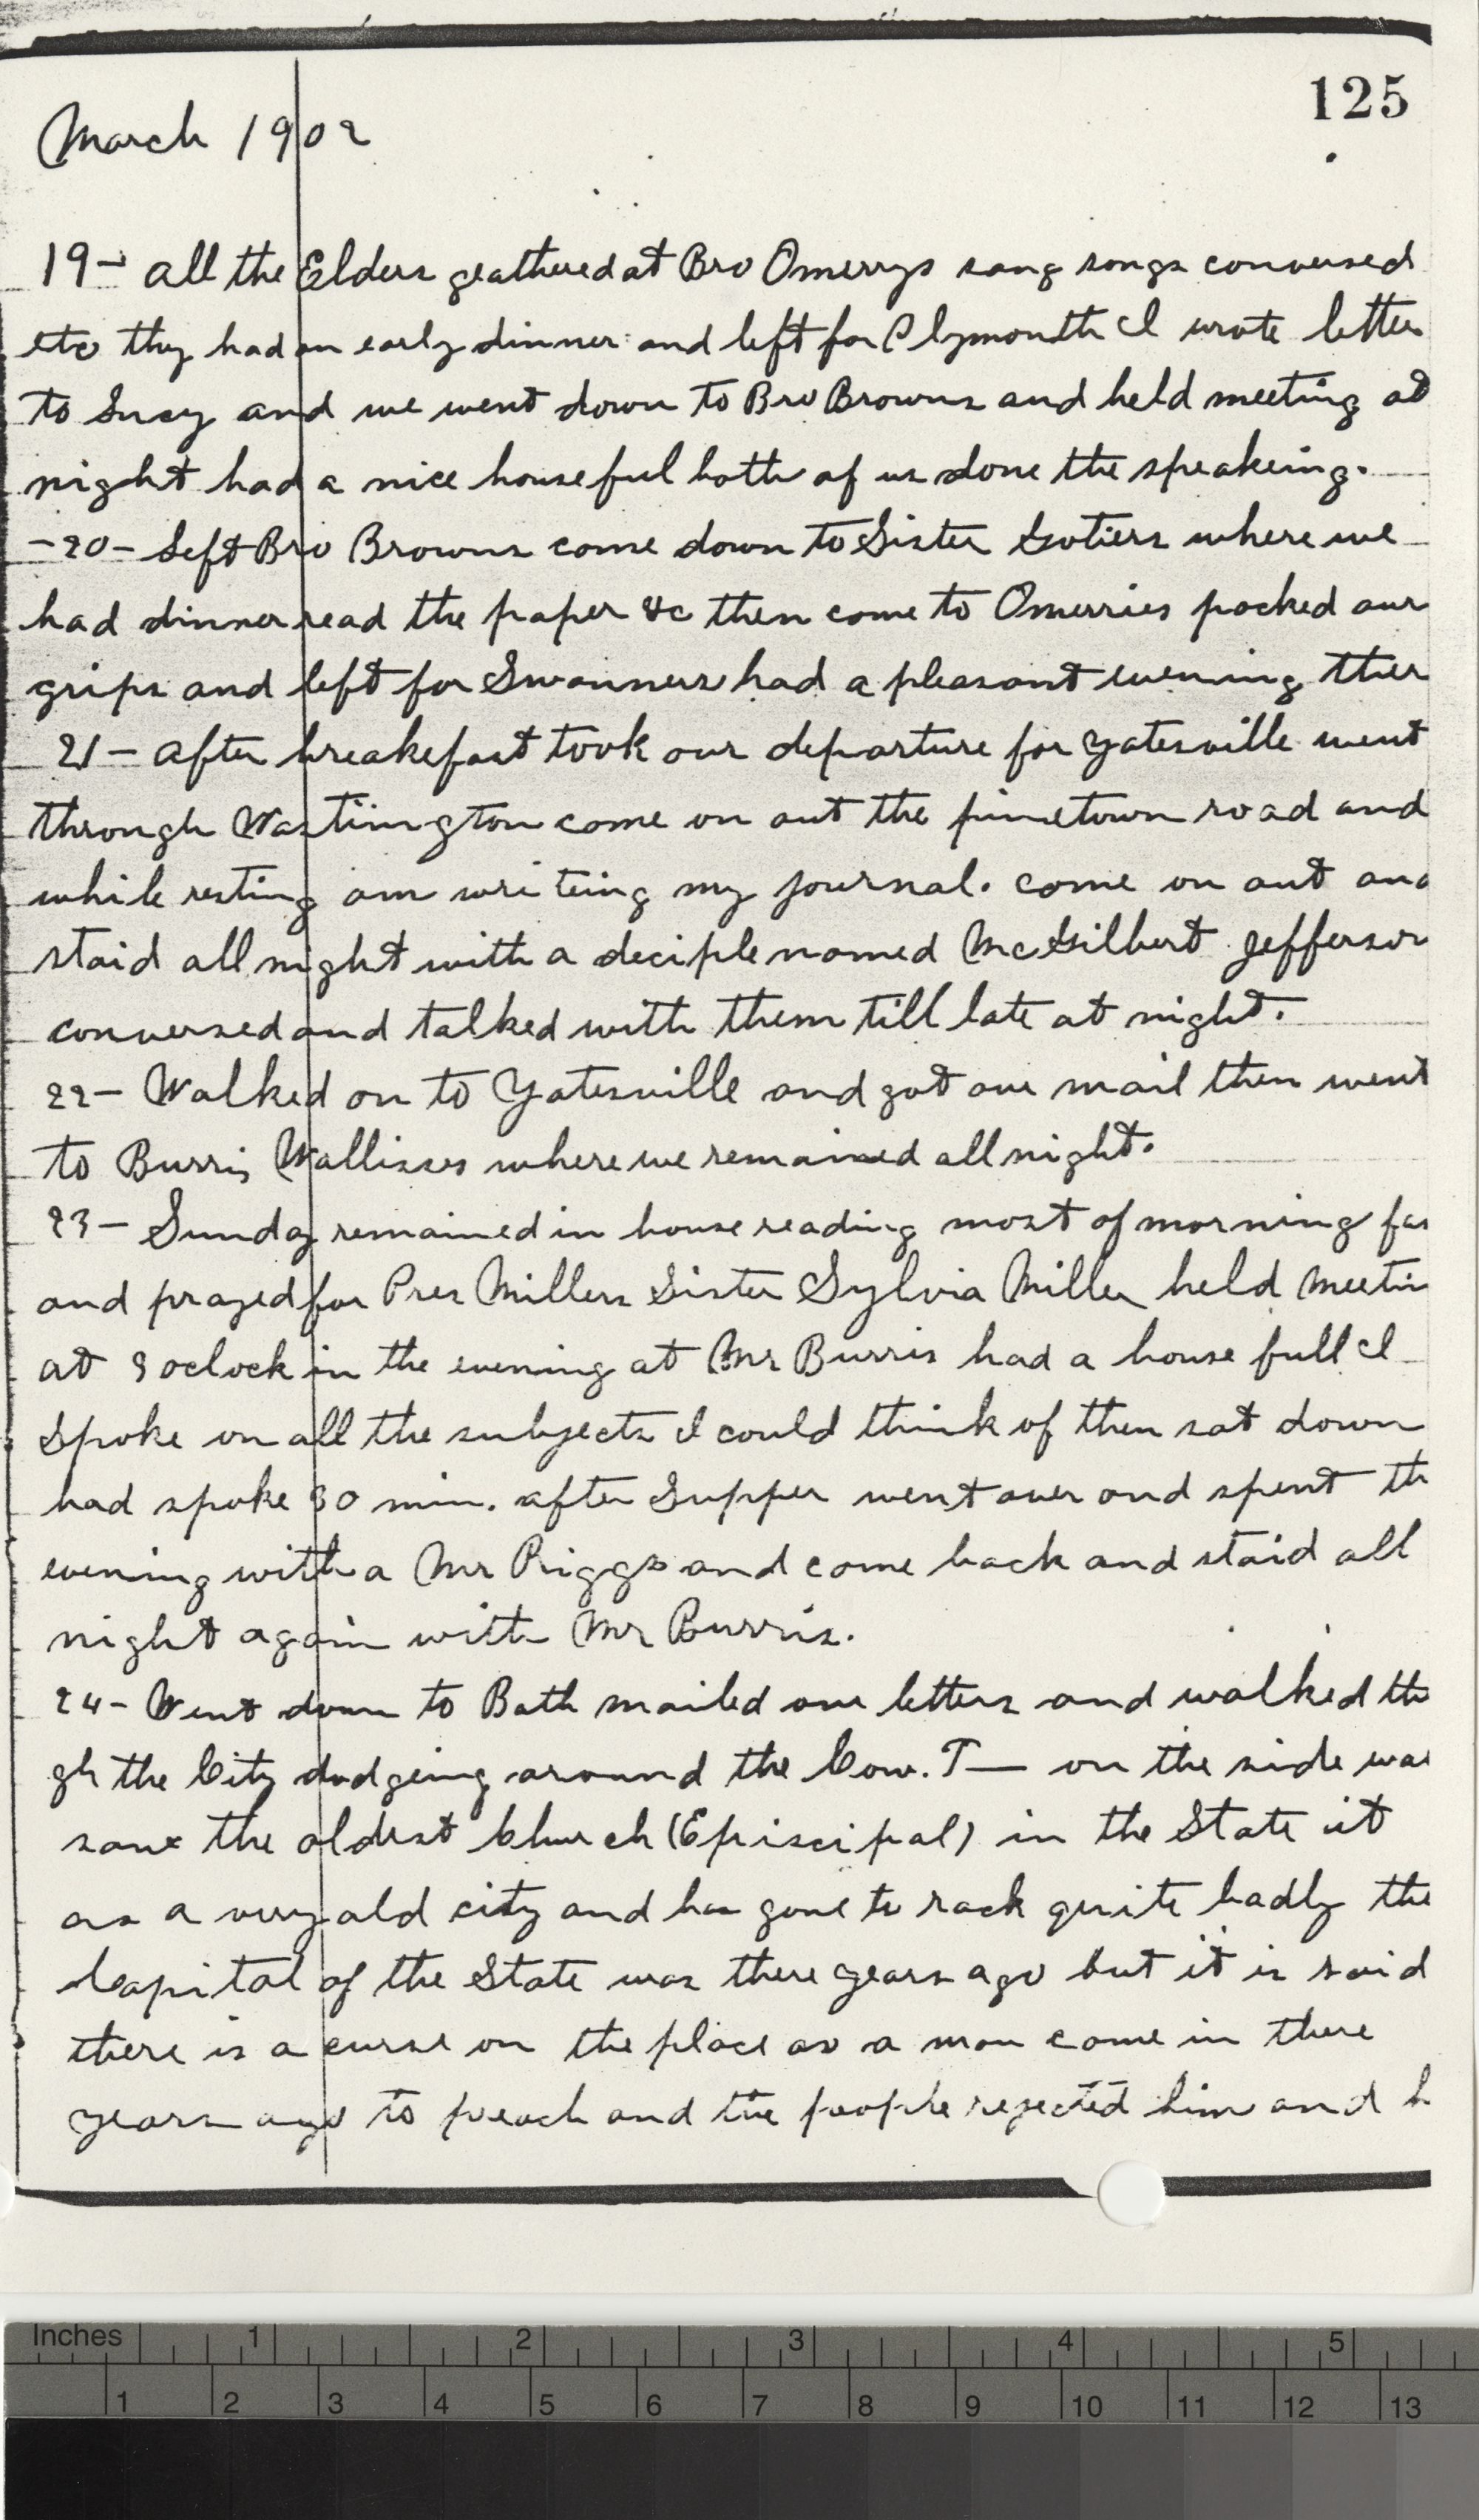 125
March 1902
19- all the Elders geathered at Bro Omerrys sang songs conversed
etc they had an early dinner and left for Plymouth I wrote letter
to Lucy and we went down to Bro Browns and held meeting at
night had a nice house ful both of us done the speakeing.
-20- Left Bro Browns come down to Sister Gotiers where we
had dinner read the paper &c then come to Omerries packed our
grips and left for Swanners had a pleasant evening ther
21- after breakefast took our departure for Yatesville went
through Wastiington come on out the pinetown road and
while resting am wri teing my journal. come on out and
staid all night with a deciple named McGilbert Jefferson
conversed and talked with them till late at night.
22- Walked on to Yatesville and got our mail then went
to Burris Wallises where we remained all night.
23- Sunday remained in house reading most of morning fas
and prayed for Pres Millers Sister Sylvia Miller held meetin
at 3 oclock in the evening at Mr Burris had a house full I
spoke on all the subjects I could think of then sat down
had spoke 30 min. after Supper went over and spent th
evening with a Mr Riggs and come back and staid all
night again with Mr Burris.
24- Went down to Bath mailed our letters and walked thr
gh the City dodgeing around the Cow. T— on the side wa
saw the oldest Church (Episcipal) in the State it
as a very old city and has gone to rack quite badly the
Capital of the State was there years ago but it is said
there is a curse on the place as a man come in there
years ago to preach and the people rejected him and h
Inches 1 2 3 4 5
1 2 3 4 5 6 7 8 9 10 11 12 13